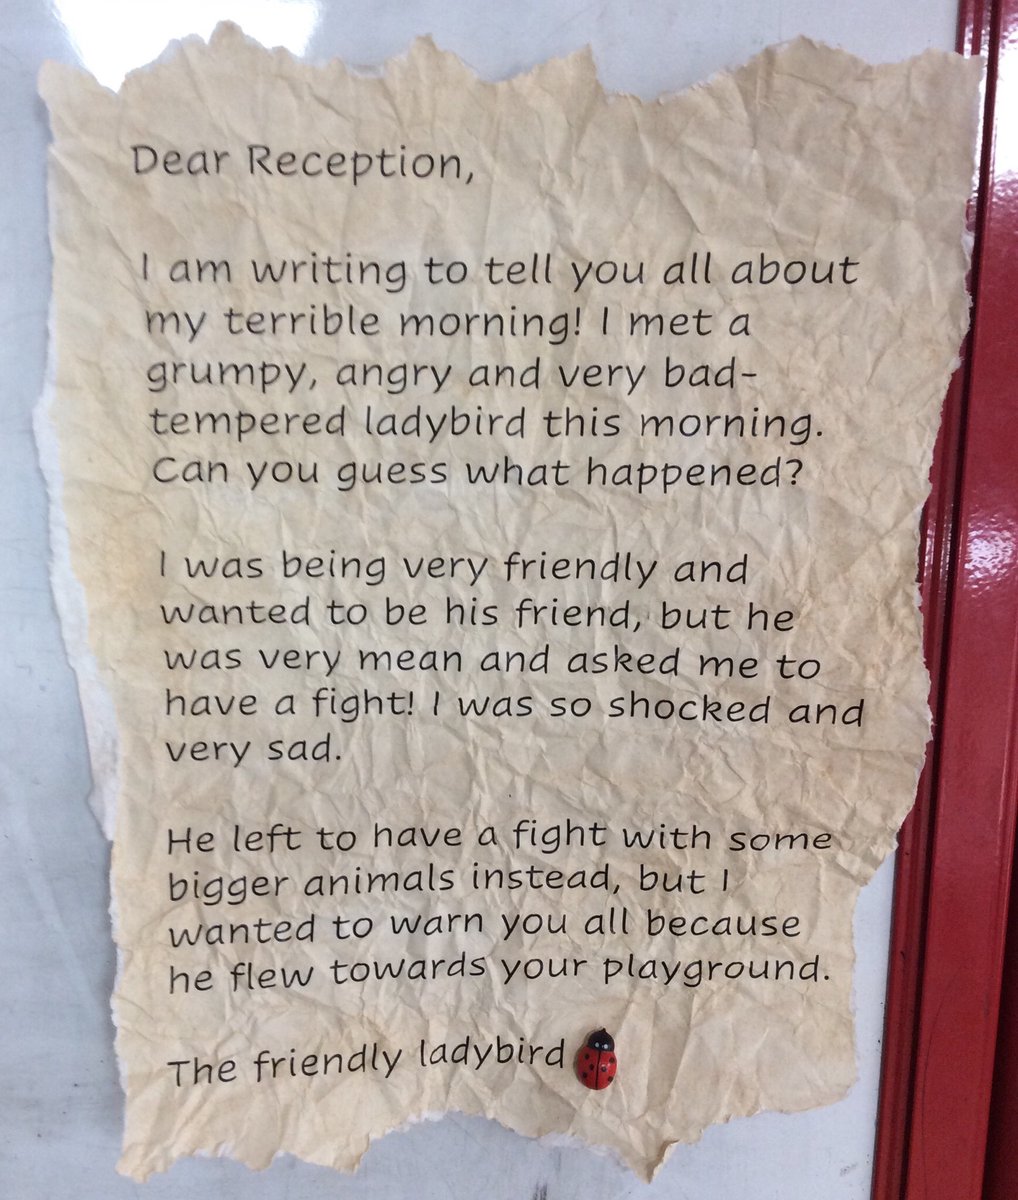 Dear Reception,
I am writing to tell you all about
my terrible morning! I met a
grumpy, angry and very bad-
tempered ladybird this morning.
Can you guess what happened?
I was being very friendly and
wanted to be his friend, but he
was very mean and asked me to
have a fight! I was so shocked and
very sad.
He left to have a fight with some
bigger animals instead, but I
wanted to warn you all because
he flew towards your playground.
The friendly ladybird